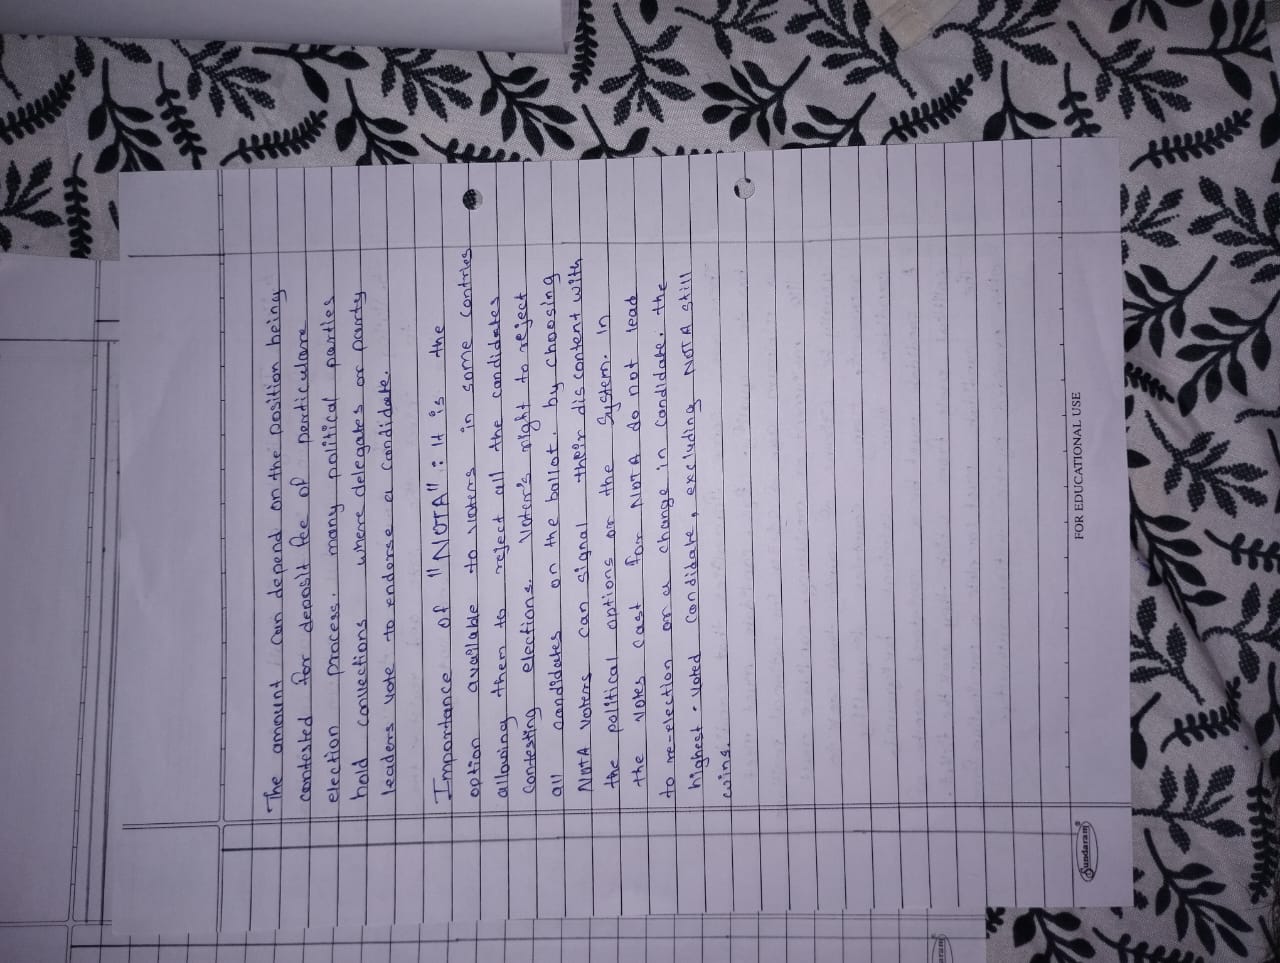 The amount can depend on the position being
contested for deposit fee of perticulare
election process. many political parties
hold convections where delegates or party
leaders vote to endorse a candidate.
Importance of "NOTA" : It is the
option available to voters in some contries
allowing them to reject all the candidates
contesting elections. Voter's right to reject
all candidates on the ballot. by choosing
NOTA voters can signal their discontent with
the political options or the system. In
the votes cast for NOTA do not lead
to re-election or a change in candidate. the
highest - voted candidate, excluding NOTA still
wins.
Sundaram
FOR EDUCATIONAL USE